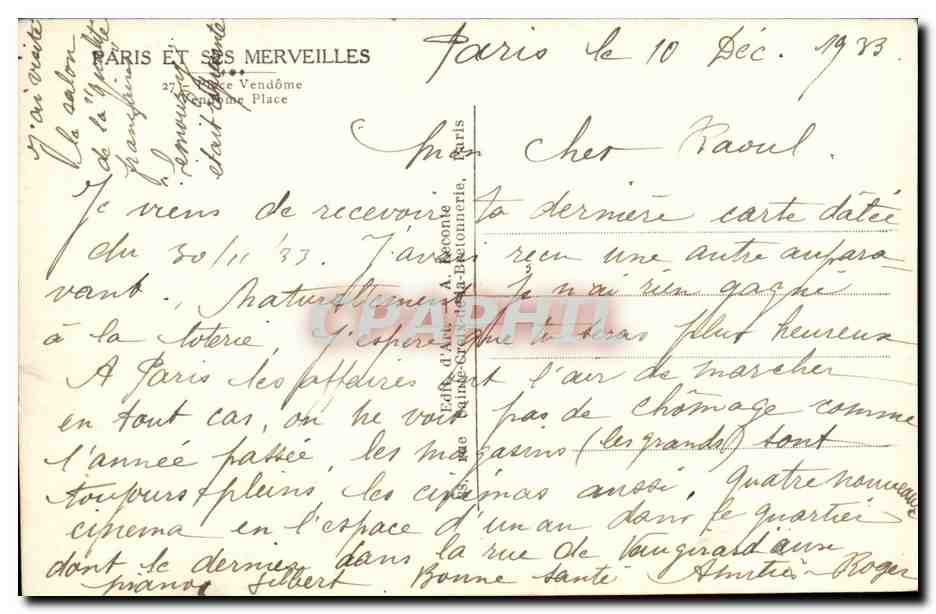 PARIS ET SES MERVEILLES
27 - Place Vendôme
Vendome Place
Edits. d'Art A. Leconte
rue Sainte-Croix-de-la-Bretonnerie, Paris
CPAPHIL
Paris le 10 Déc. 1933
Mon Cher Raoul.
Je viens de recevoir ta dernière carte datée
du 30/11/33. J'avais reçu une autre aupara
vant. Naturellement je n'ai rien gagné
à la loterie, j'espère que tu seras plus heureux
A Paris les affaires ont l'air de marcher
en tout cas, on ne voit pas de chômage comme
l'année passée, les magasins (les grands) sont
toujours pleins, les cinémas aussi. Quatre nouveaux
cinema en l'espace d'un an dans le quartier
dont le dernier dans la rue de Vaugirard
Gilbert Bonne santé Amitiés Roger
J'ai visité
le salon
de la
française
était